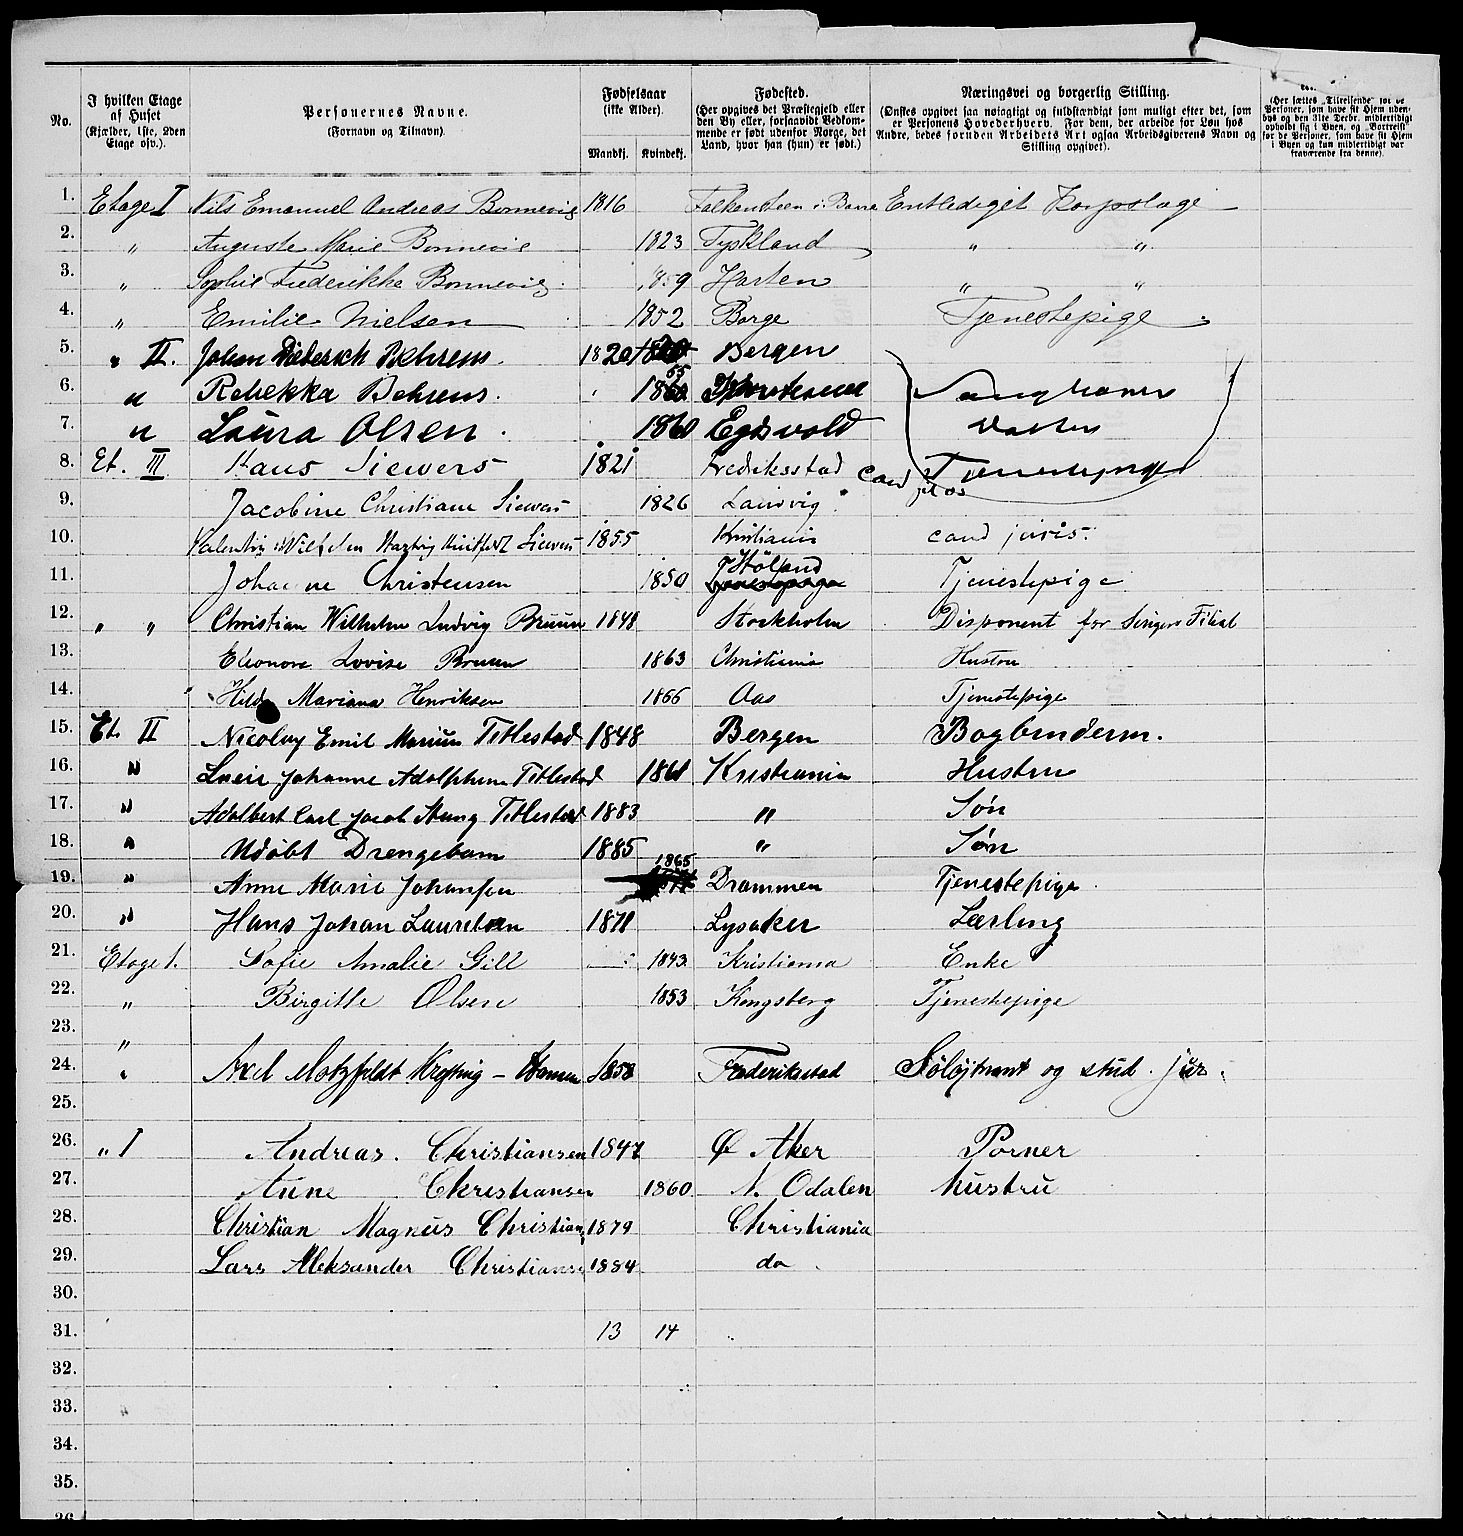 No. I hvilken Etage af Huset (Kjælder, 1ste, 2den Etage osv.). Personernes Navne. (Fornavn og Tilnavn). Fødselsaar (ikke Alder). Mandkj. Kvindekj. Fødested. (Her opgives det Præstegjeld eller den By eller, forsaavidt Vedkommende er født udenfor Norge, det Land, hvor han (hun) er født.) Næringsvei og borgerlig Stilling. (Ønskes opgivet saa nøiagtigt og fuldstændigt som muligt efter det, som er Personens Hovederhverv. For dem, der arbeide for Løn hos Andre, bedes foruden Arbeidets Art ogsaa Arbeidsgiverens Navn og Stilling opgivet). (Her sættes „Tilreisende" for de Personer, som have sit Hjem udenbys og den 31te Decbr. midlertidigt opholdt sig i Byen, og „Bortreist" for de Personer, som have sit Hjem i Byen og kun midlertidigt var fraværende fra denne).
1. Etage I Nils Emanuel Andreas Bonnevie 1816 Falkensteen i Borre Entlediget Korpslæge
2. " Auguste Marie Bonnevie 1823 Tyskland " "
3. " Sophie Frederikke Bonnevie 1859 Horten " "
4. " Emilie Nielsen 1852 Borge Tjenestepige
5. " II. Johan Diderich Behrens 1820 Bergen
6. " Rebekka Behrens. Sanglærer
7. " Laura Olsen. 1860 Eidsvold Datter
8. Et. III Hans Siewers 1821 Fredriksstad Tjenestepige
9. Jacobine Christiane Siewers 1826 Laurvig
10. Siewers 1855 Kristiania cand juris.
11. Johanne Christensen 1850 Høland Tjenestepige
12. " " Christian Wilhelm Ludvig Bruun 1848 Stockholm Disponent for Singers Filial
13. Eleonore Lovise Bruun 1863 Christiania Hustru
14. " Hilda Mariana Henriksen 1866 Aas Tjenestepige
15. Et. II Nicolay Emil Marius Titlestad 1848 Bergen Bogbinderm.
16. " Johanne Adolphine Titlestad 1861 Kristiania Hustru
17. " Adelbert Carl Jacob Stang Titlestad 1883 " Søn
18. " Udøbt Drengebarn 1885 " Søn
19. " Anne Marie Johansen 1865 Drammen Tjenestepige
20. " Hans Johan Lauritsen 1871 Lysaker Lærling
21. Etage 1. Sofie Amalie Gill 1843 Kristiania Enke
22. " Birgitte Olsen 1853 Kongsberg Tjenestepige
23. "
24. Axel Motzfeldt Krefting - Hansen 1858 Frederikstad Søløjtnant og stud. jur.
25.
26. " I Andreas. Christiansen 1847 Ø Aker Porner
27. Anne Christiansen 1860 N. Odalen hustru
28. Christian Magnus Christian 1879 Christiania
29. Lars Aleksander Christianse 1884 do
30.
31. 13 14
32.
33.
34.
35.
36